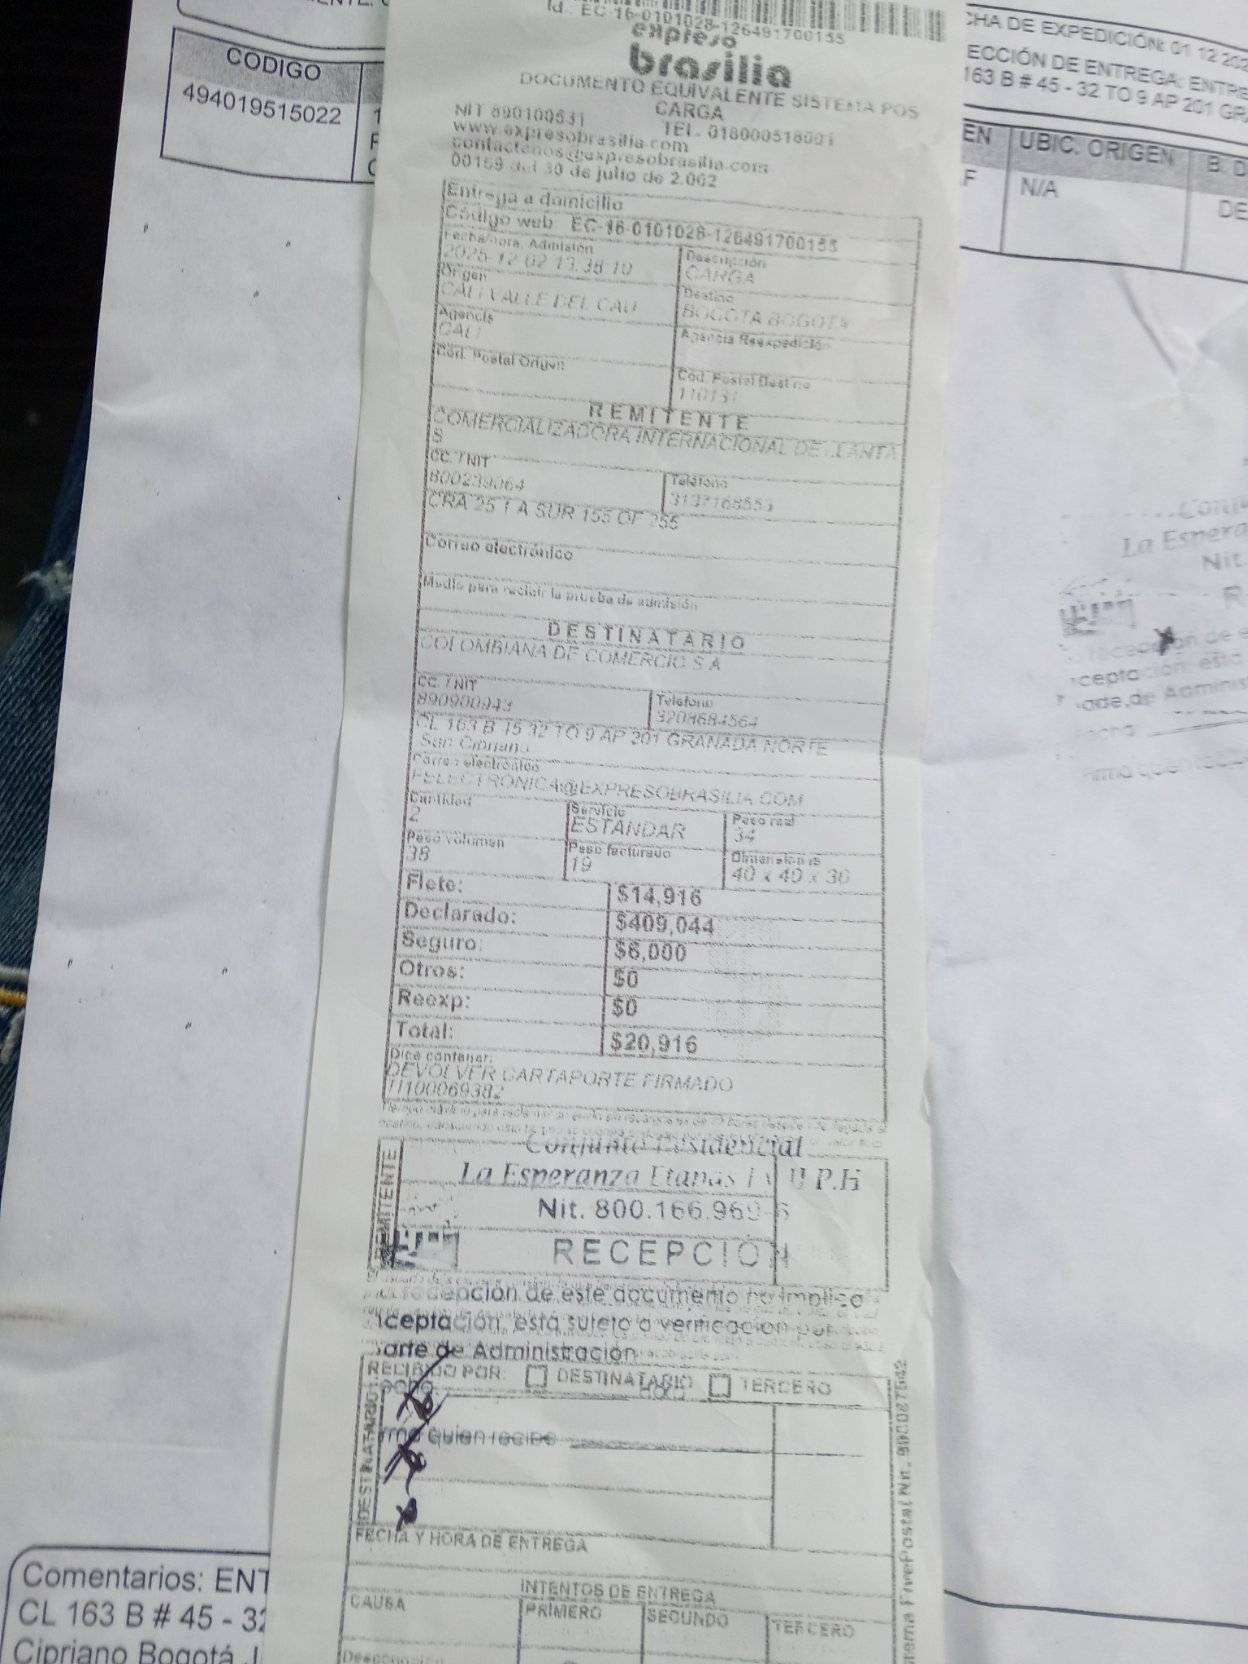 CODIGO
494019515022
CHA DE EXPEDICIÓN: 01 12 202
ECCIÓN DE ENTREGA: ENTRE
163 B # 45 - 32 TO 9 AP 201 GRA
EN
UBIC. ORIGEN
B. D
F
N/A
DE
Id.: EC-16-0101028-126491700155
expreso
brasilia
DOCUMENTO EQUIVALENTE SISTEMA POS
CARGA
NIT 890100531
TEL. 018000518001
www.expresobrasilia.com
contactenos@expresobrasilia.com
00159 del 30 de julio de 2.002
Entrega a domicilio
Código web: EC-16-0101028-126491700155
Fecha/hora. Admisión
2025-12-02 13:38:10
Descripción
CARGA
Origen
CALI VALLE DEL CAU
Destino
BOGOTA BOGOTA
Agencia
CALI
Agencia Reexpedición
Cód. Postal Origen
Cód. Postal Destino
REMITENTE
COMERCIALIZADORA INTERNACIONAL DE LLANTA
S
CC. / NIT
800239064
Teléfono
CRA 25 1 A SUR 155 OF 255
Correo electrónico
Medio para recibir la prueba de admisión
DESTINATARIO
COLOMBIANA DE COMERCIO S A
CC. / NIT
890900943
Teléfono
3208684564
CL 163 B 45 32 TO 9 AP 201 GRANADA NORTE
San Cipriano
Correo electrónico
FELECTRONICA@EXPRESOBRASILIA.COM
Cantidad
2
Servicio
ESTANDAR
Peso real
34
Peso volumen
38
Peso facturado
19
Dimensiones
40 x 40 x 30
Flete: $14,916
Declarado: $409,044
Seguro: $6,000
Otros: $0
Reexp: $0
Total: $20,916
Dice contener:
DEVOLVER CARTAPORTE FIRMADO
TI100069382
Conjunto Residencial
La Esperanza Etapas I y II P.H
Nit. 800.166.969-6
RECEPCIÓN
REMITENTE
recepción de este documento no implica
aceptación, está sujeto a verificación por
parte de Administración
RECIBIDO POR: DESTINATARIO TERCERO
DESTINATARIO
Firma quien recibe
FECHA Y HORA DE ENTREGA
INTENTOS DE ENTREGA
CAUSA
PRIMERO
SEGUNDO
TERCERO
Desconocido
La Espera
Nit.
Comentarios: ENT
CL 163 B # 45 - 32
Cipriano Bogotá